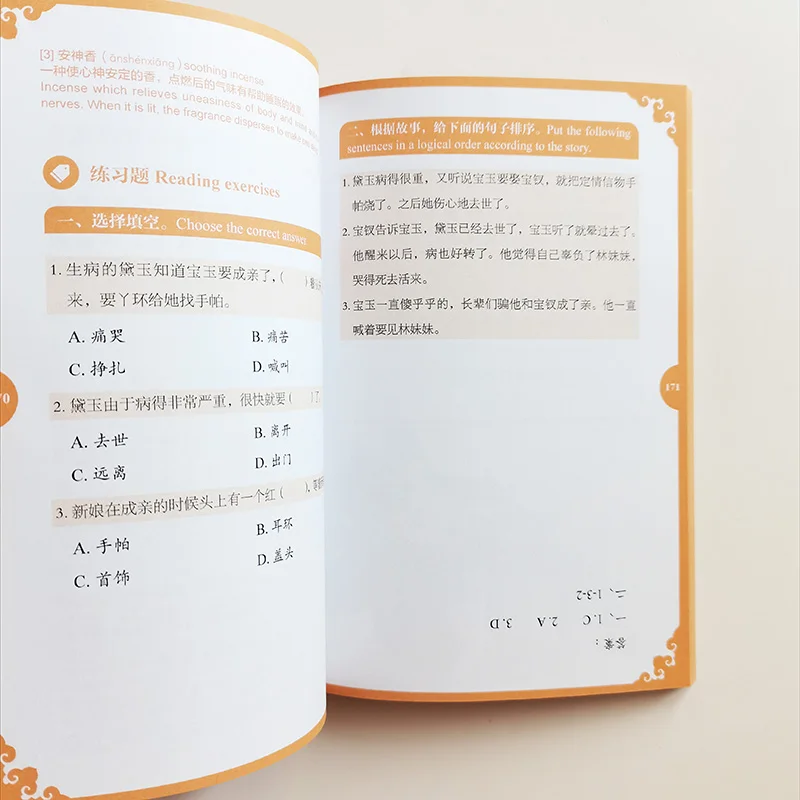 [3] 安神香（ānshénxiāng）soothing incense
一种使心神安定的香，点燃后的气味有帮助睡眠的效果。
Incense which relieves uneasiness of body and
nerves. When it is lit, the fragrance disperses to make
练习题 Reading exercises
一、选择填空。Choose the correct answer.
1. 生病的黛玉知道宝玉要成亲了，（ ）
来，要丫环给她找手帕。
A. 痛哭 B. 痛苦
C. 挣扎 D. 喊叫
2. 黛玉由于病得非常严重，很快就要（ ）了
A. 去世 B. 离开
C. 远离 D. 出门
3. 新娘在成亲的时候头上有一个红（ ），
A. 手帕 B. 耳环
C. 首饰 D. 盖头
70
二、根据故事，给下面的句子排序。Put the following
sentences in a logical order according to the story.
1. 黛玉病得很重，又听说宝玉要娶宝钗，就把定情信物手
帕烧了。之后她伤心地去世了。
2. 宝钗告诉宝玉，黛玉已经去世了，宝玉听了就晕过去了。
他醒来以后，病也好转了。他觉得自己辜负了林妹妹，
哭得死去活来。
3. 宝玉一直傻乎乎的，长辈们骗他和宝钗成了亲。他一直
喊着要见林妹妹。
171
答案：
一、1. C 2. A 3. D
二、1-3-2